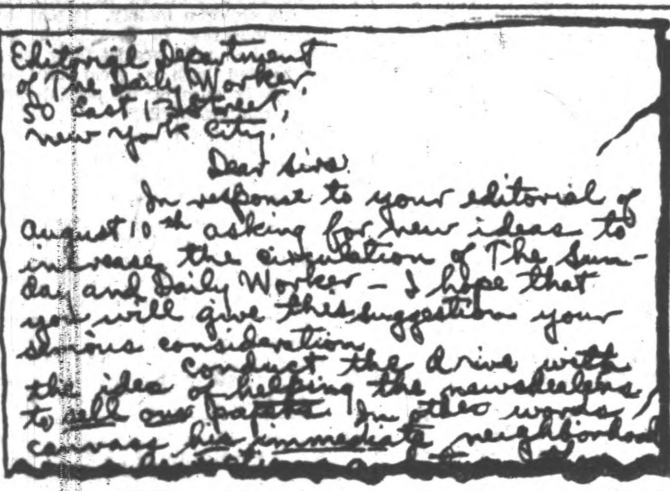 Editorial Department
of The Daily Worker,
50 East 13 Street,
New York City.
Dear Sirs:
In response to your editorial of
August 10th asking for new ideas to
increase the circulation of The Sun-
day and Daily Worker – I hope that
you will give this suggestion your
serious consideration.
Conduct the drive with
the idea of helping the newsdealers
to sell our papers. In other words,
canvass his immediate neighborhood